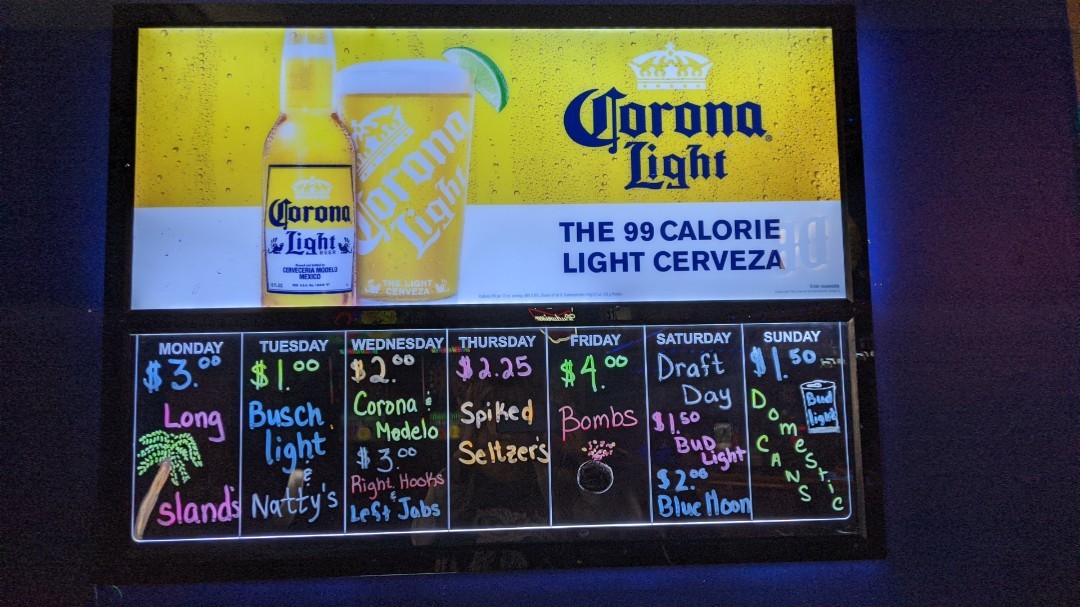 Corona
Light
THE 99 CALORIE
LIGHT CERVEZA
Corona
Light
BEER
CERVECERIA MODELO
MEXICO
Corona
Light
THE LIGHT
CERVEZA
MONDAY
$3.00
Long
Islands
TUESDAY
$1.00
Busch
light
&
Natty's
WEDNESDAY
$2.00
Corona &
Modelo
$3.00
Right Hooks
&
Left Jabs
THURSDAY
$2.25
Spiked
Seltzer's
FRIDAY
$4.00
Bombs
SATURDAY
Draft
Day
$1.50
Bud
Light
$2.00
Blue Moon
SUNDAY
$1.50
Bud
light
Domestic
CANS